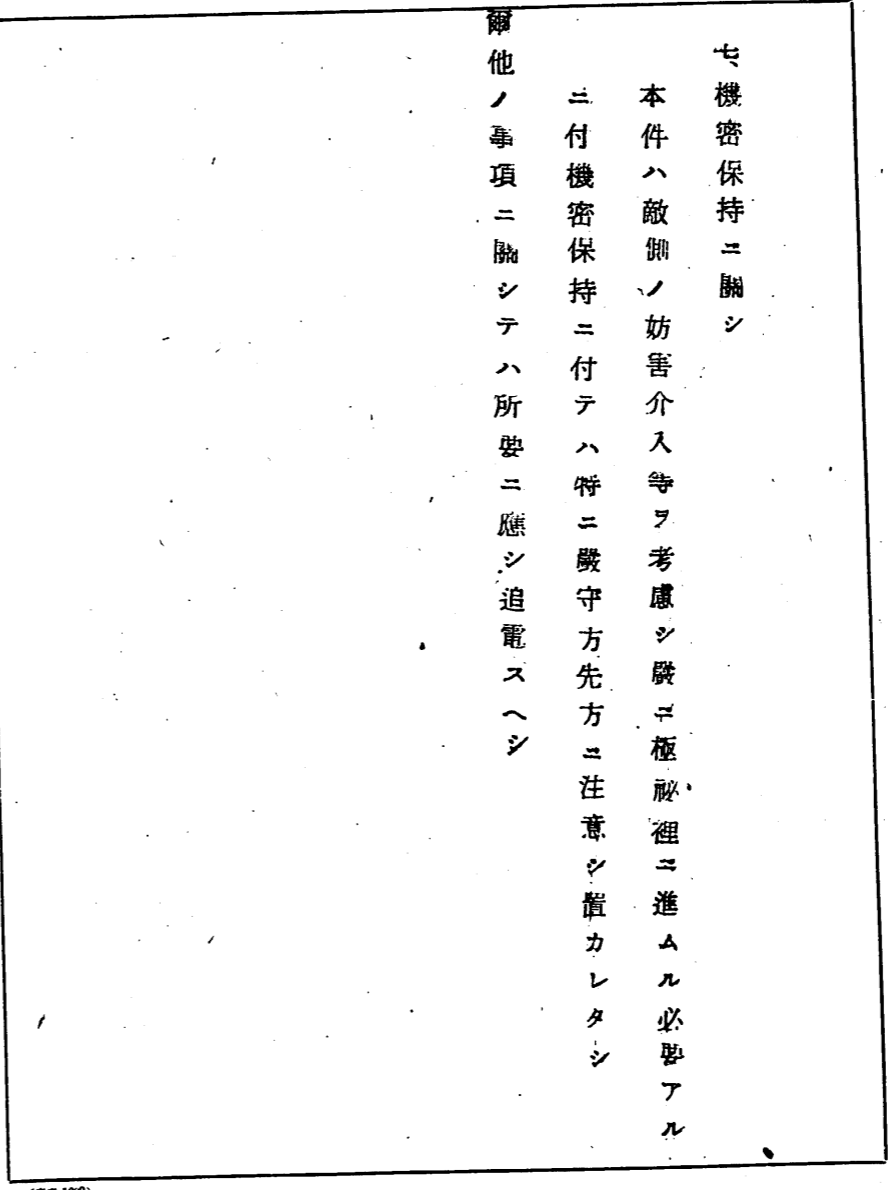 七、機密保持ニ關シ
本件ハ敵側ノ妨害介入等ヲ考慮シ嚴ニ極祕裡ニ進ムル必要アル
ニ付機密保持ニ付テハ特ニ嚴守方先方ニ注意シ置カレタシ
爾他ノ事項ニ關シテハ所要ニ應シ追電スヘシ